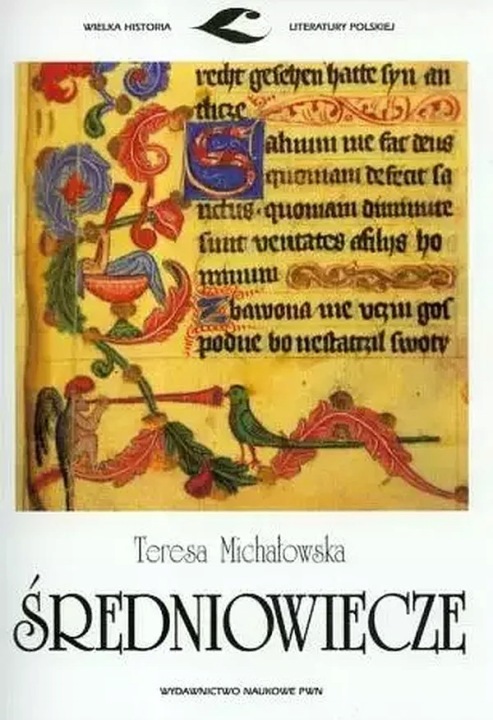 WIELKA HISTORIA LITERATURY POLSKIEJ
recht gesehen hatte syn an
tlicze
Saluum me fac deus
quoniam defecit sa
nctus · quoniam diminute
sunt veritates afilijs ho
minum
Zbawona me uczin gos
podne bo nestatczil swoty
Teresa Michałowska
ŚREDNIOWIECZE
WYDAWNICTWO NAUKOWE PWN